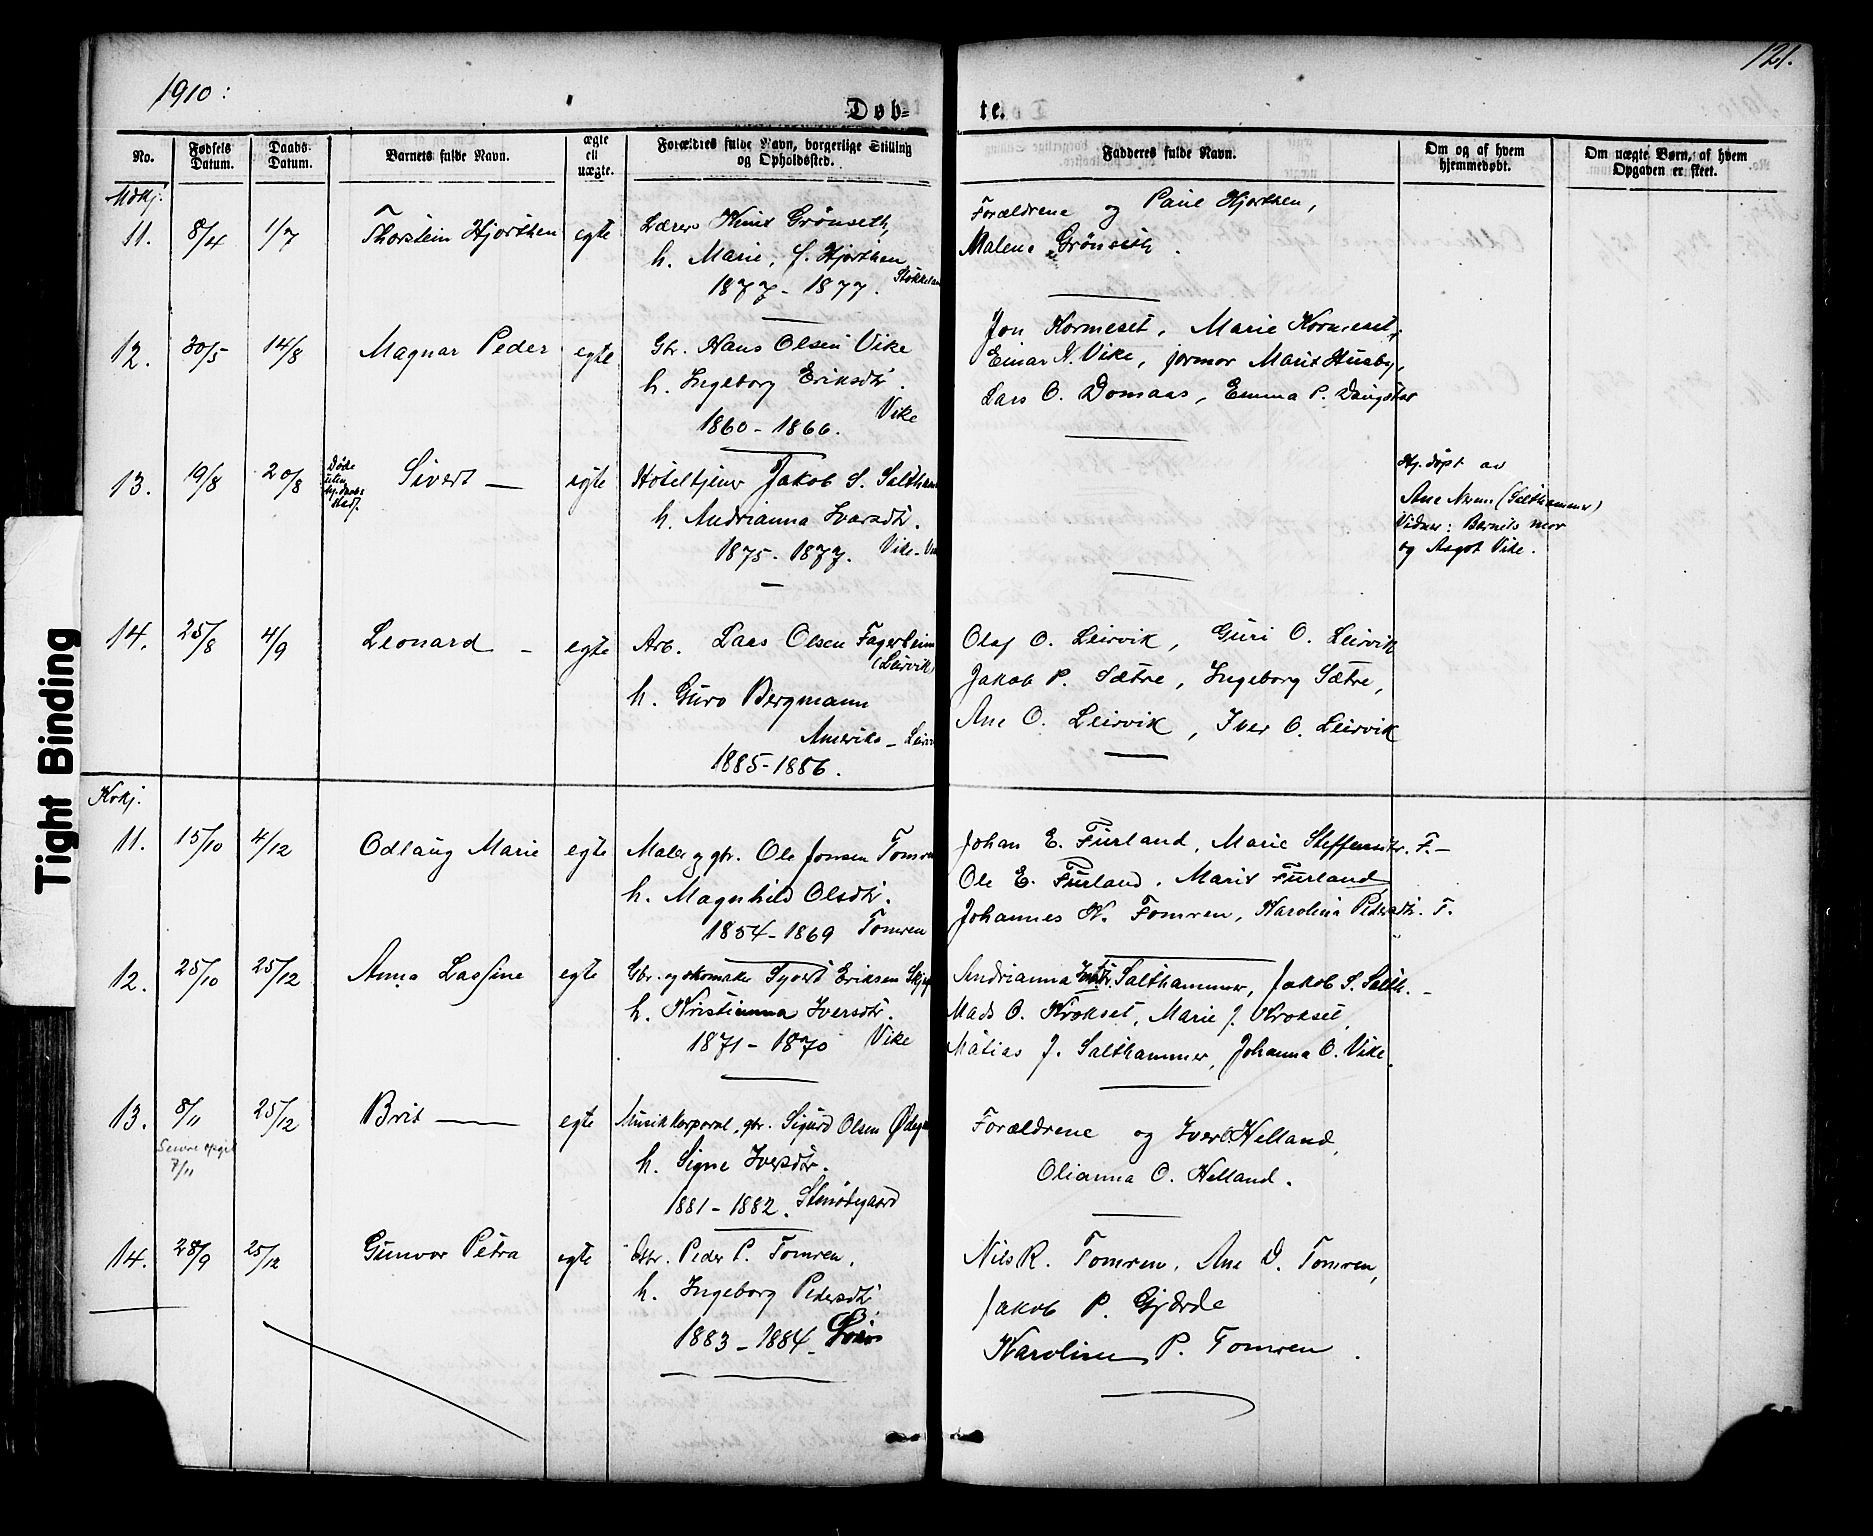 1910:
121.
Døb=
te.
No.
Fødsels Datum.
Daabs- Datum.
Barnets fulde Navn.
ægte ell uægte.
Forældres fulde Navn, borgerlige Stilling og Opholdssted.
Faddernes fulde Navn.
Om og af hvem hjemmedøbt.
Om uægte Børn, af hvem Opgaven er skeet.
Mdkj.
11. 8/4 1/7 Thorstein Hjorthen egte Lærer Knut Grönseth,
h. Marie, f. Hjorthen
1877 - 1877.
Forældrene og Paul Hjorthen,
Malene Grönseth.
12. 30/5 14/8 Magnar Peder egte Gbr. Hans Olsen Vike
h. Ingeborg Eriksdtr.
Vike
1860 - 1866.
Jon Kormeset, Marie Kormeset,
Einar N. Vike, jormor Marit Husby,
Lars O. Domaas, Emma P. Daugstad
13. 19/8 20/8 Døde uten Sivert — egte Hoteltjener Jakob S. Saltham
h. Andrianna Ivarsdtr.
1875 - 1877. Vike-
Hj.døpt av
Ane (Salthammer)
Vidner: Barnets mor
og Aagot Vike.
14. 25/8 4/9 Leonard - egte Arb. Lars Olsen Fagerheim
(Leirvik)
h. Guro Bergmann
Amerika - Leirv
1885-1886.
Olaf O. Leirvik, Guri O. Leirvik
Jakob P. Sætre, Ingeborg Sætre,
Ane O. Leirvik, Iver O. Leirvik
Kvkj.
11. 15/10 4/12 Odlaug Marie egte Maler og gbr. Ole Jonsen Tomren
h. Magnhild Olsdtr.
1854 - 1869 Tomren
Johan E. Furland, Marie Steffensdtr. F.-
Ole E. Furland. Marit Furland,
Johannes K. Tomren, Karolina Pedersdtr. T.
12. 25/10 25/12 Anna Lassine egte Gbr. og skomaker Syvert Eriksen
h. Kristianna Iversdtr.
1871 - 1870 Vike
Andrianna Salthammer, Jakob S. Salth. -
Mads O. Krokset, Marie J. Krokset,
Matias J. Salthammer, Johanna O. Vike.
13. 8/11 25/12 Brit — egte Musikkorporal, gbr. Sigurd Olsen Ødeg
7/11
h. Signe Iversdtr.
1881 - 1882.
Forældrene og Iver Helland,
Olianna O. Helland.
14. 28/9 25/12 Gunvor Petra egte Gbr. Peder P. Tomren,
h. Ingeborg Pedersdtr.
1883 - 1884.
Nils R. Tomren, Ane D. Tomren,
Jakob P. Gjærde
Karoline P. Tomren.
Tight Binding